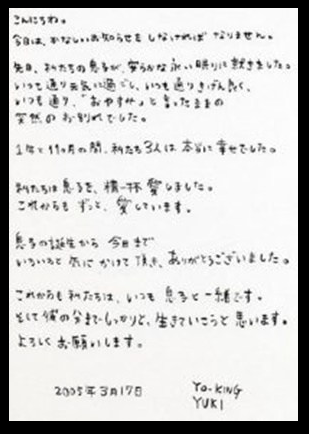 こんにちわ。
今日は、かなしいお知らせをしなければなりません。
先日、私たちの息子が、安らかな永い眠りに就きました。
いつも通り元気に過ごし、いつも通りきげん良く、
いつも通り、「おやすみ」と言ったままの
突然のお別れでした。
1年と11ヶ月の間、私たち3人は本当に幸せでした。
私たちは息子を、精一杯愛しました。
これからもずっと、愛しています。
息子の誕生から今日まで
いろいろと気にかけて頂き、ありがとうございました。
これからも私たちは、いつも息子と一緒です。
そして彼の分までしっかりと、生きていこうと思います。
よろしくお願いします。
2005年3月17日 YO-KING
YUKI